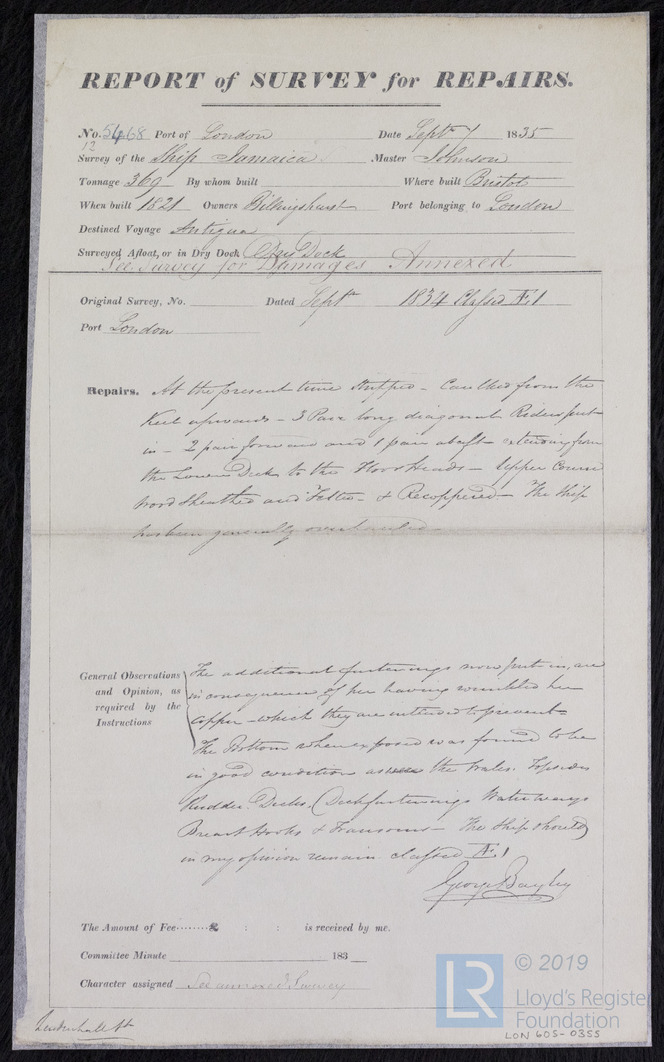 REPORT of SURVEY for REPAIRS.
No. 5468 Port of London Date Septr 7 1835
12
Survey of the Ship Jamaica Master Johnson
Tonnage 369 By whom built Where built Bristol
When built 1821 Owners Billinghurst Port belonging to London
Destined Voyage Antigua
Surveyed Afloat, or in Dry Dock Dry Dock
See Survey for Damages Annexed
Original Survey, No. Dated Septr 1834 Classed Æ1
Port London
Repairs. At the present time stripped - Caulked from the
Keel upwards - 3 Pair long diagonal Riders put
in - 2 pair forward and 1 pair abaft - extending from
the Lower Deck to the Floor Heads - Upper Course
Wood Sheathed and Felted - & Recoppered - The Ship
has been generally overhauled -
General Observations and Opinion, as required by the Instructions
The additional fastenings now put in, are
in consequence of her having wrinkled her
copper - which they are intended to prevent -
The Bottom when exposed was found to be
in good condition as the Wales. Topsides
Rudder. Decks. Deckfastenings Waterways
Breast Hooks & Transoms - The Ship should
in my opinion remain classed Æ1
George Bayley
The Amount of Fee........£ : : is received by me.
Committee Minute 183
Character assigned See annexed Survey
Leadenhall St
LR © 2019
Lloyd's Register
Foundation
LON 605-0355